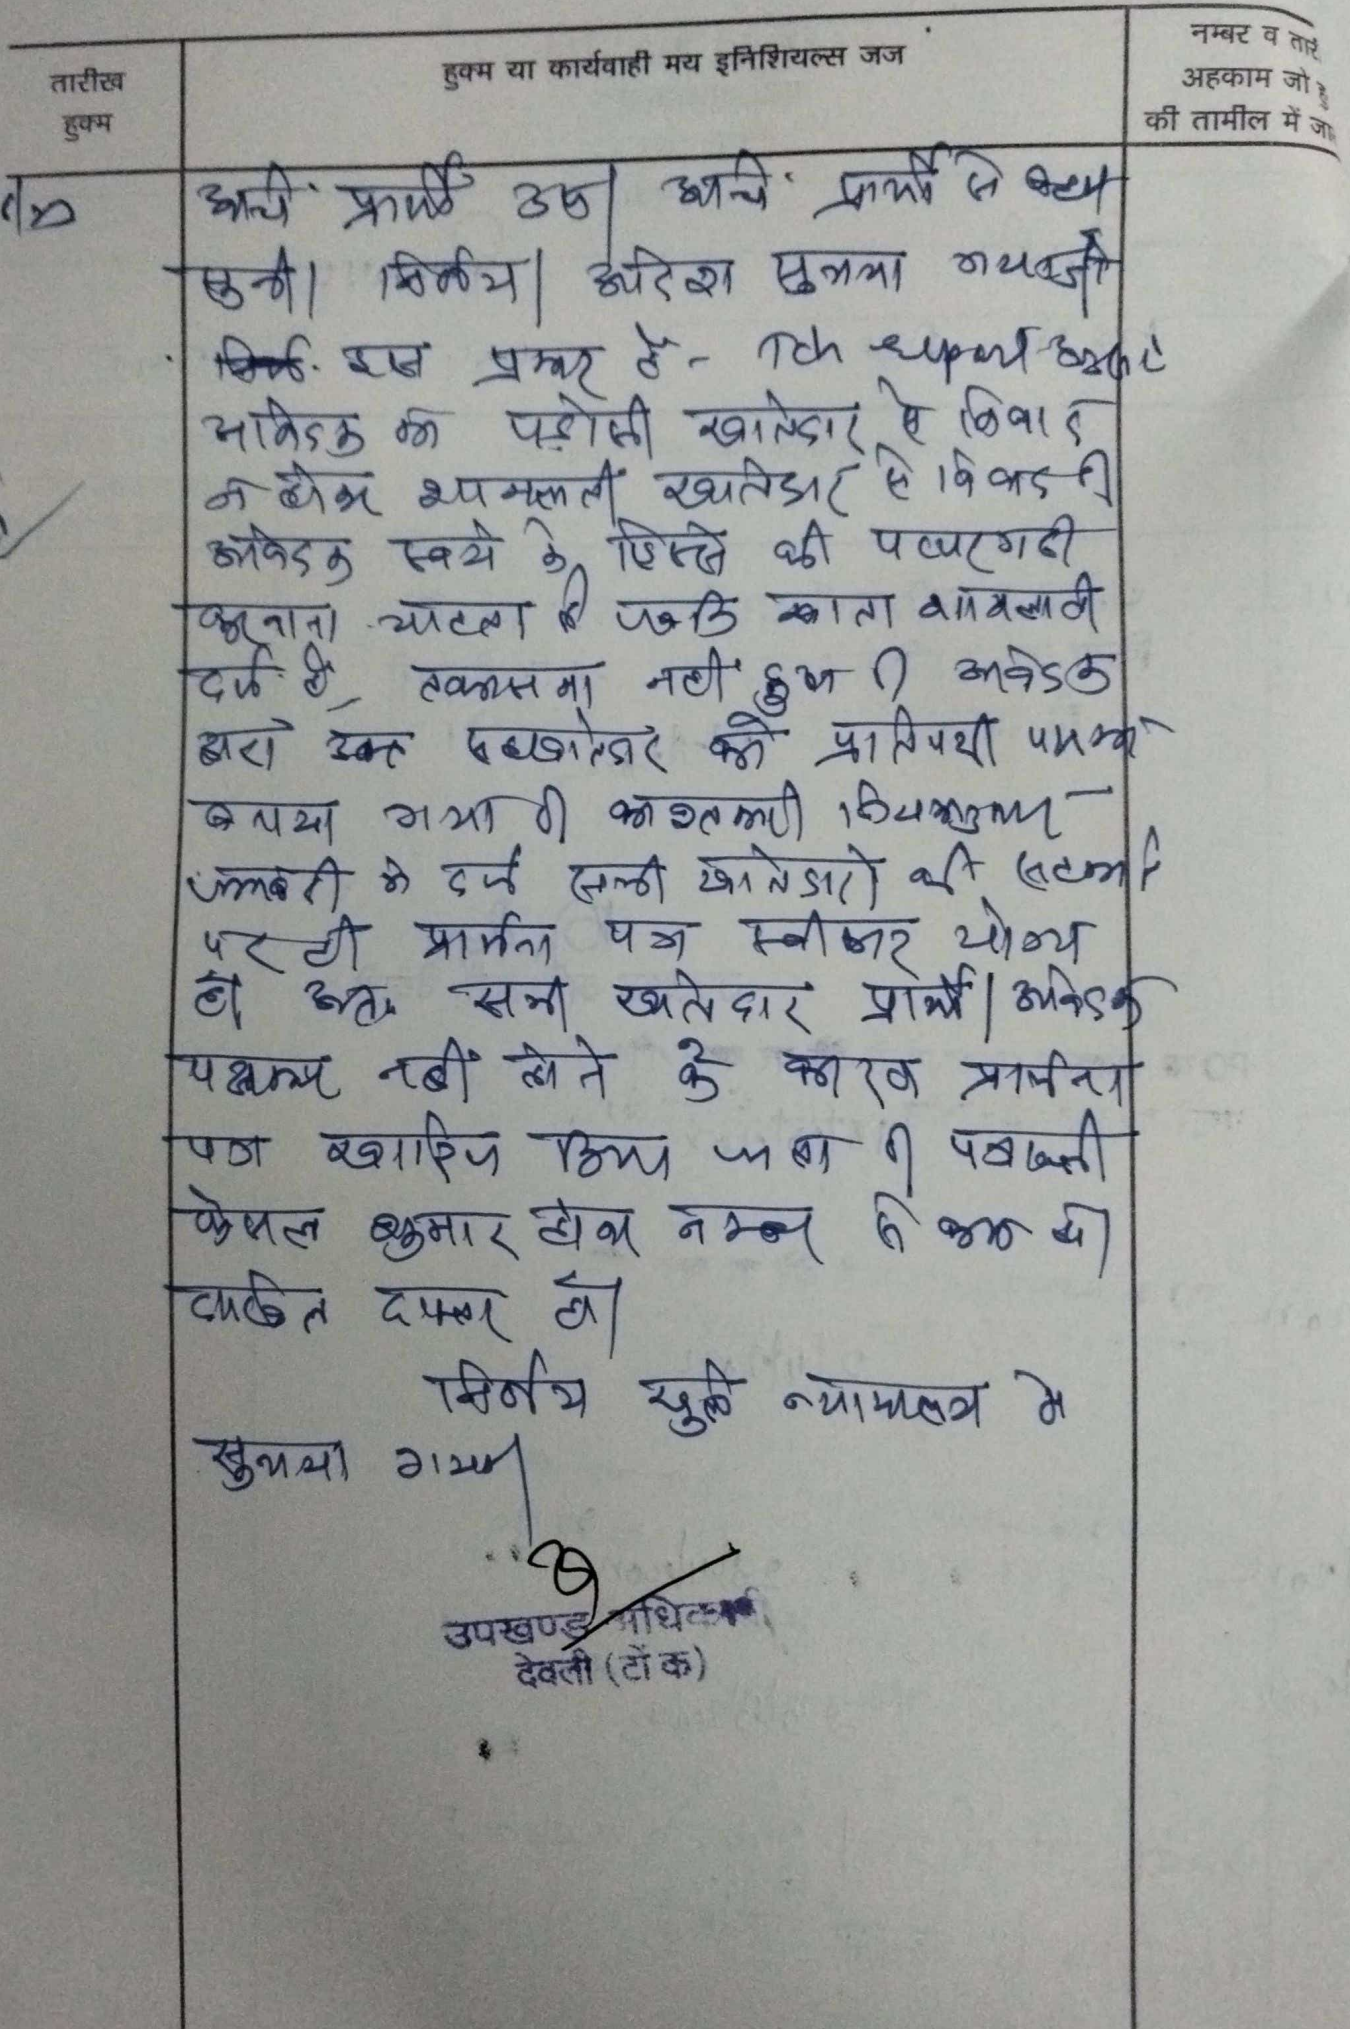 तारीख
हुक्म
हुक्म या कार्यवाही मय इनिशियल्स जज
नम्बर व तारी
अहकाम जो हु
की तामील में जा
अधि. प्रार्थी उप। अधि. प्रार्थी से बहस
सुनी। निर्णय। आदेश सुनाया गया जो
इस प्रकार है -
आवेदक का पड़ोसी खातेदार से विवाद
न होकर शामलाती खातेदार से विवाद है।
आवेदक स्वयं के हिस्से की पत्थरगढी
करवाना चाहता है जबकि खाता शामलाती
दर्ज है, तकासमा नहीं हुआ है। आवेदक
द्वारा उक्त सहखातेदार को प्रतिपक्षी पक्षकार
बनाया गया है। काश्तकारी नियमानुसार
जमाबंदी में दर्ज सभी खातेदारों की सहमति
पर ही प्रार्थना पत्र स्वीकार योग्य
है। अतः सभी खातेदार प्रार्थी। आवेदक
पक्षकार नहीं होने के कारण प्रार्थना
पत्र खारिज किया जाता है। पत्रावली
फैसल शुमार होकर नम्बर से कम हो।
दाखिल दफ्तर हो।
निर्णय खुले न्यायालय में
सुनाया गया।
उपखण्ड अधिकारी
देवली (टोंक)